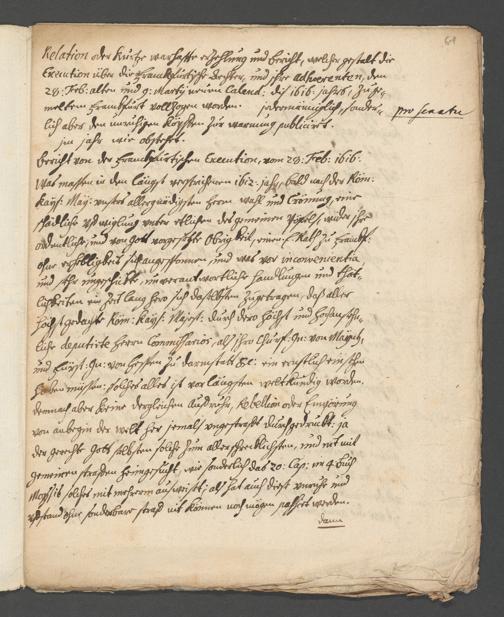 61
Relation oder kurtze warhaffte erzehlung und bericht, welcher gestalt die
Execution über die Franckfurtische Aechter, und ihre adhaerenten, den
28: Feb: alten und 9. Martij neuen Calend. diß 1616. Jahrs, zu
Franckfurt vollzogen worden. jedermänniglich, sonder-
pro senatu
lich aber den unrühigen Köpffen zur warnung publicirt.
im jahr wie obstehet.
Bericht von der Franckfurtischen Execution, vom 28: Feb: 1616.
Was massen in dem Längst verstrichenen 1612. jahr, bald nach der Röm:
Kayß: May: unsers allergnädigsten Herrn wahl und Crönung, eine
schädliche uffwiglung unter etlichen des gemeinen Pöfels wider ihre
ordentliche, und von Gott vorgesetzte Obrigkeit, einen E. Rath zu Franckf:
ohne sich angesponnen, und was vor inconvenientia,
und sehr ungeschickte, unverantwortliche Handlungen und Thät-
lichkeiten ein Zeit lang hero sich daselbsten zugetragen, daß aller
höchstgedachte Röm: Kayß: Majest: durch dero höchst und hochansehn-
liche deputirte Herrn Commissarios, als ihre Churf: Gn: von Mäyntz,
und Fürst: Gn: von Hessen zu Darmstatt &c: ein ernstlich einsehen
haben müssen: solches alles ist vor längsten weltkündig worden.
Demnach aber keine dergleichen Auffruhr, Rebellion oder Empörung
von anbegin der welt her jemals ungestrafft durchgetruckt: ja
der gerechte Gott selbsten solche zum allerschrecklichsten, und mit
gemeinen straffen heimgesucht, wie sonderlich das 20: Cap: im 4 buch
Moysis solches mit mehrerm außweiset; als hat auch diese unruhe und
uffstand ohne sonderbare straff nit können noch mögen passirt werden.
Dann